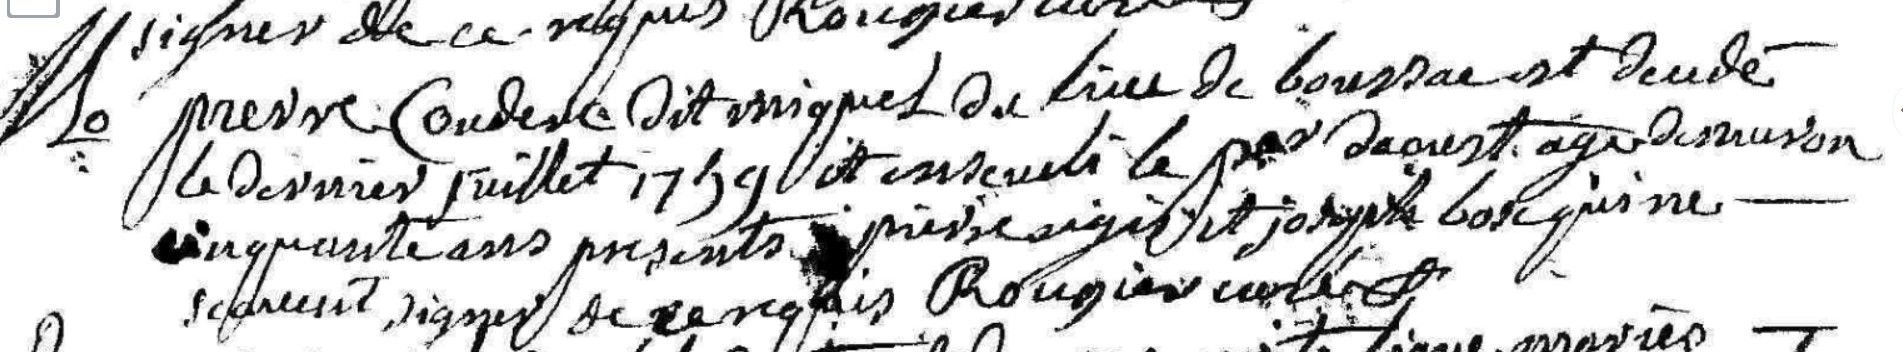 signer de ce requis Rougier curé
pierre Couderc dit miquel du lieu de boussac est decedé
le dernier juillet 1759 et enseveli le per daoust agé denviron
cinquante ans presents pierre sigié et joseph bosc qui ne
scavent signer de ce requis Rougier curé
mariés